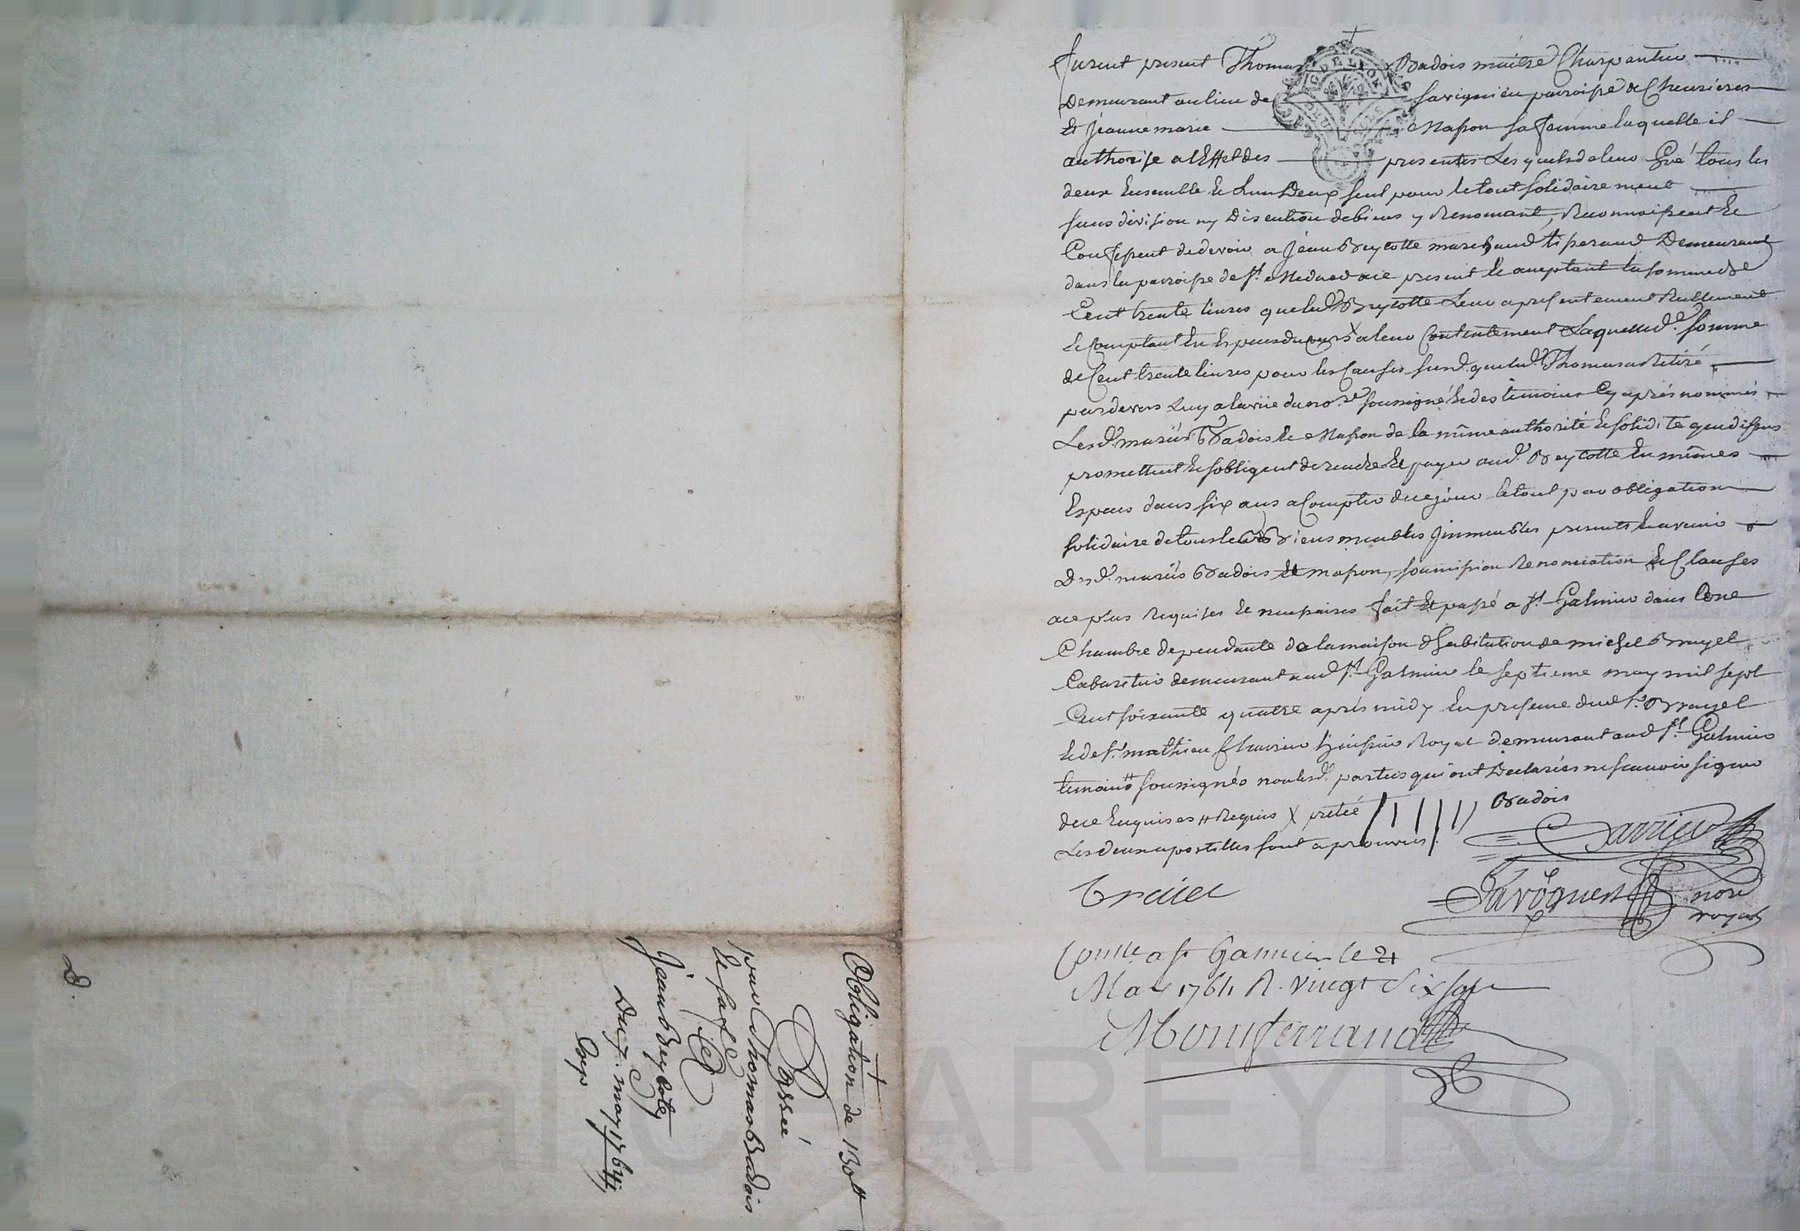 furent present Thomas Badois maitre Charpentier
Demeurant au lieu de Savignieu parroisse de Chevrieres
Et Jeanne marie Masson sa femme laquelle il
authorise a l'Effet des presentes Lesquels de leur Gré tous les
deux Ensemble Et L'un Deux seul pour le tout solidairement
sans division ny Discution de biens y Renonçant, Reconnoissent Et
Confessent de devoir a Jean Breycotte marchand tisserand Demeurant
dans la parroisse de St Medard icy present Et acceptant la somme de
Cent trente livres que led. Breycotte Leur a presentement Reellement
Et Comptant En Especes du cours X a leur Contentement Laquelle de. somme
de Cent trente livres pour les Causes susd. que led. Thomas a Retiré
pardevers Luy a la vüe du no.re soussigné Et des temoins Cy après nommés
Les d. mariés Badois Et Masson de la même authorité Et solidité que dessus
promettent Et s'obligent de rendre Et payer aud. Breycotte En mêmes
Especes dans six ans a Compter de ce jour le tout par obligation
solidaire de tous leurs Biens meubles Immeubles presents Et avenir
Desd. mariés Badois Et masson, soumission Renonciation Et Clauses
a ce plus Requises Et necessaires fait Et passé a St Galmier dans Une
Chambre dependante de la maison d'habitation de michel Brayet
Cabaretier demeurant aud. St Galmier le septieme may mil sept
Cent soixante quatre après midy En presence dud. Sr Brayet
Et de Sr mathieu Charrier huissier Royal demeurant aud St Galmier
temoins soussignés non lesd. parties qui ont Declarées ne scavoir signer
de ce Enquises Et Requis X
Les deux apostilles sont aprouvées
Badois
Braiet
nore
royal
Conlle a St Gamier le 21
May 1764 R. vingt six sols
Monferrand
Obligation de 130lt
Passé
par Thomas Badois
Et sa fe
A
Jean Breycotte
Du 7. may 1764
Exp